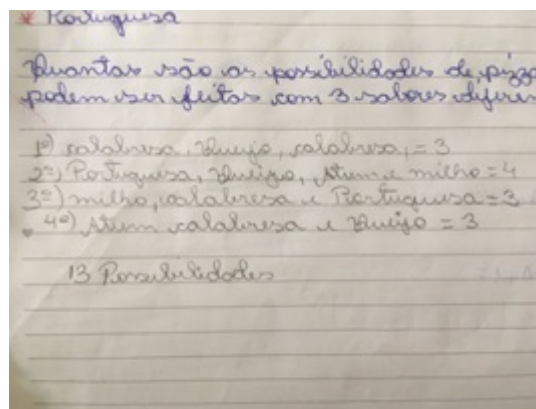 * Portuguesa
Quantas são as possibilidades de pizza
podem ser feitas com 3 sabores diferen
1º) calabresa, Queijo, calabresa, = 3
2º) Portuguesa, Queijo, Atum e milho = 4
3º) milho, calabresa e Portuguesa = 3
4º) Atum calabresa e Queijo = 3
13 Possibilidades